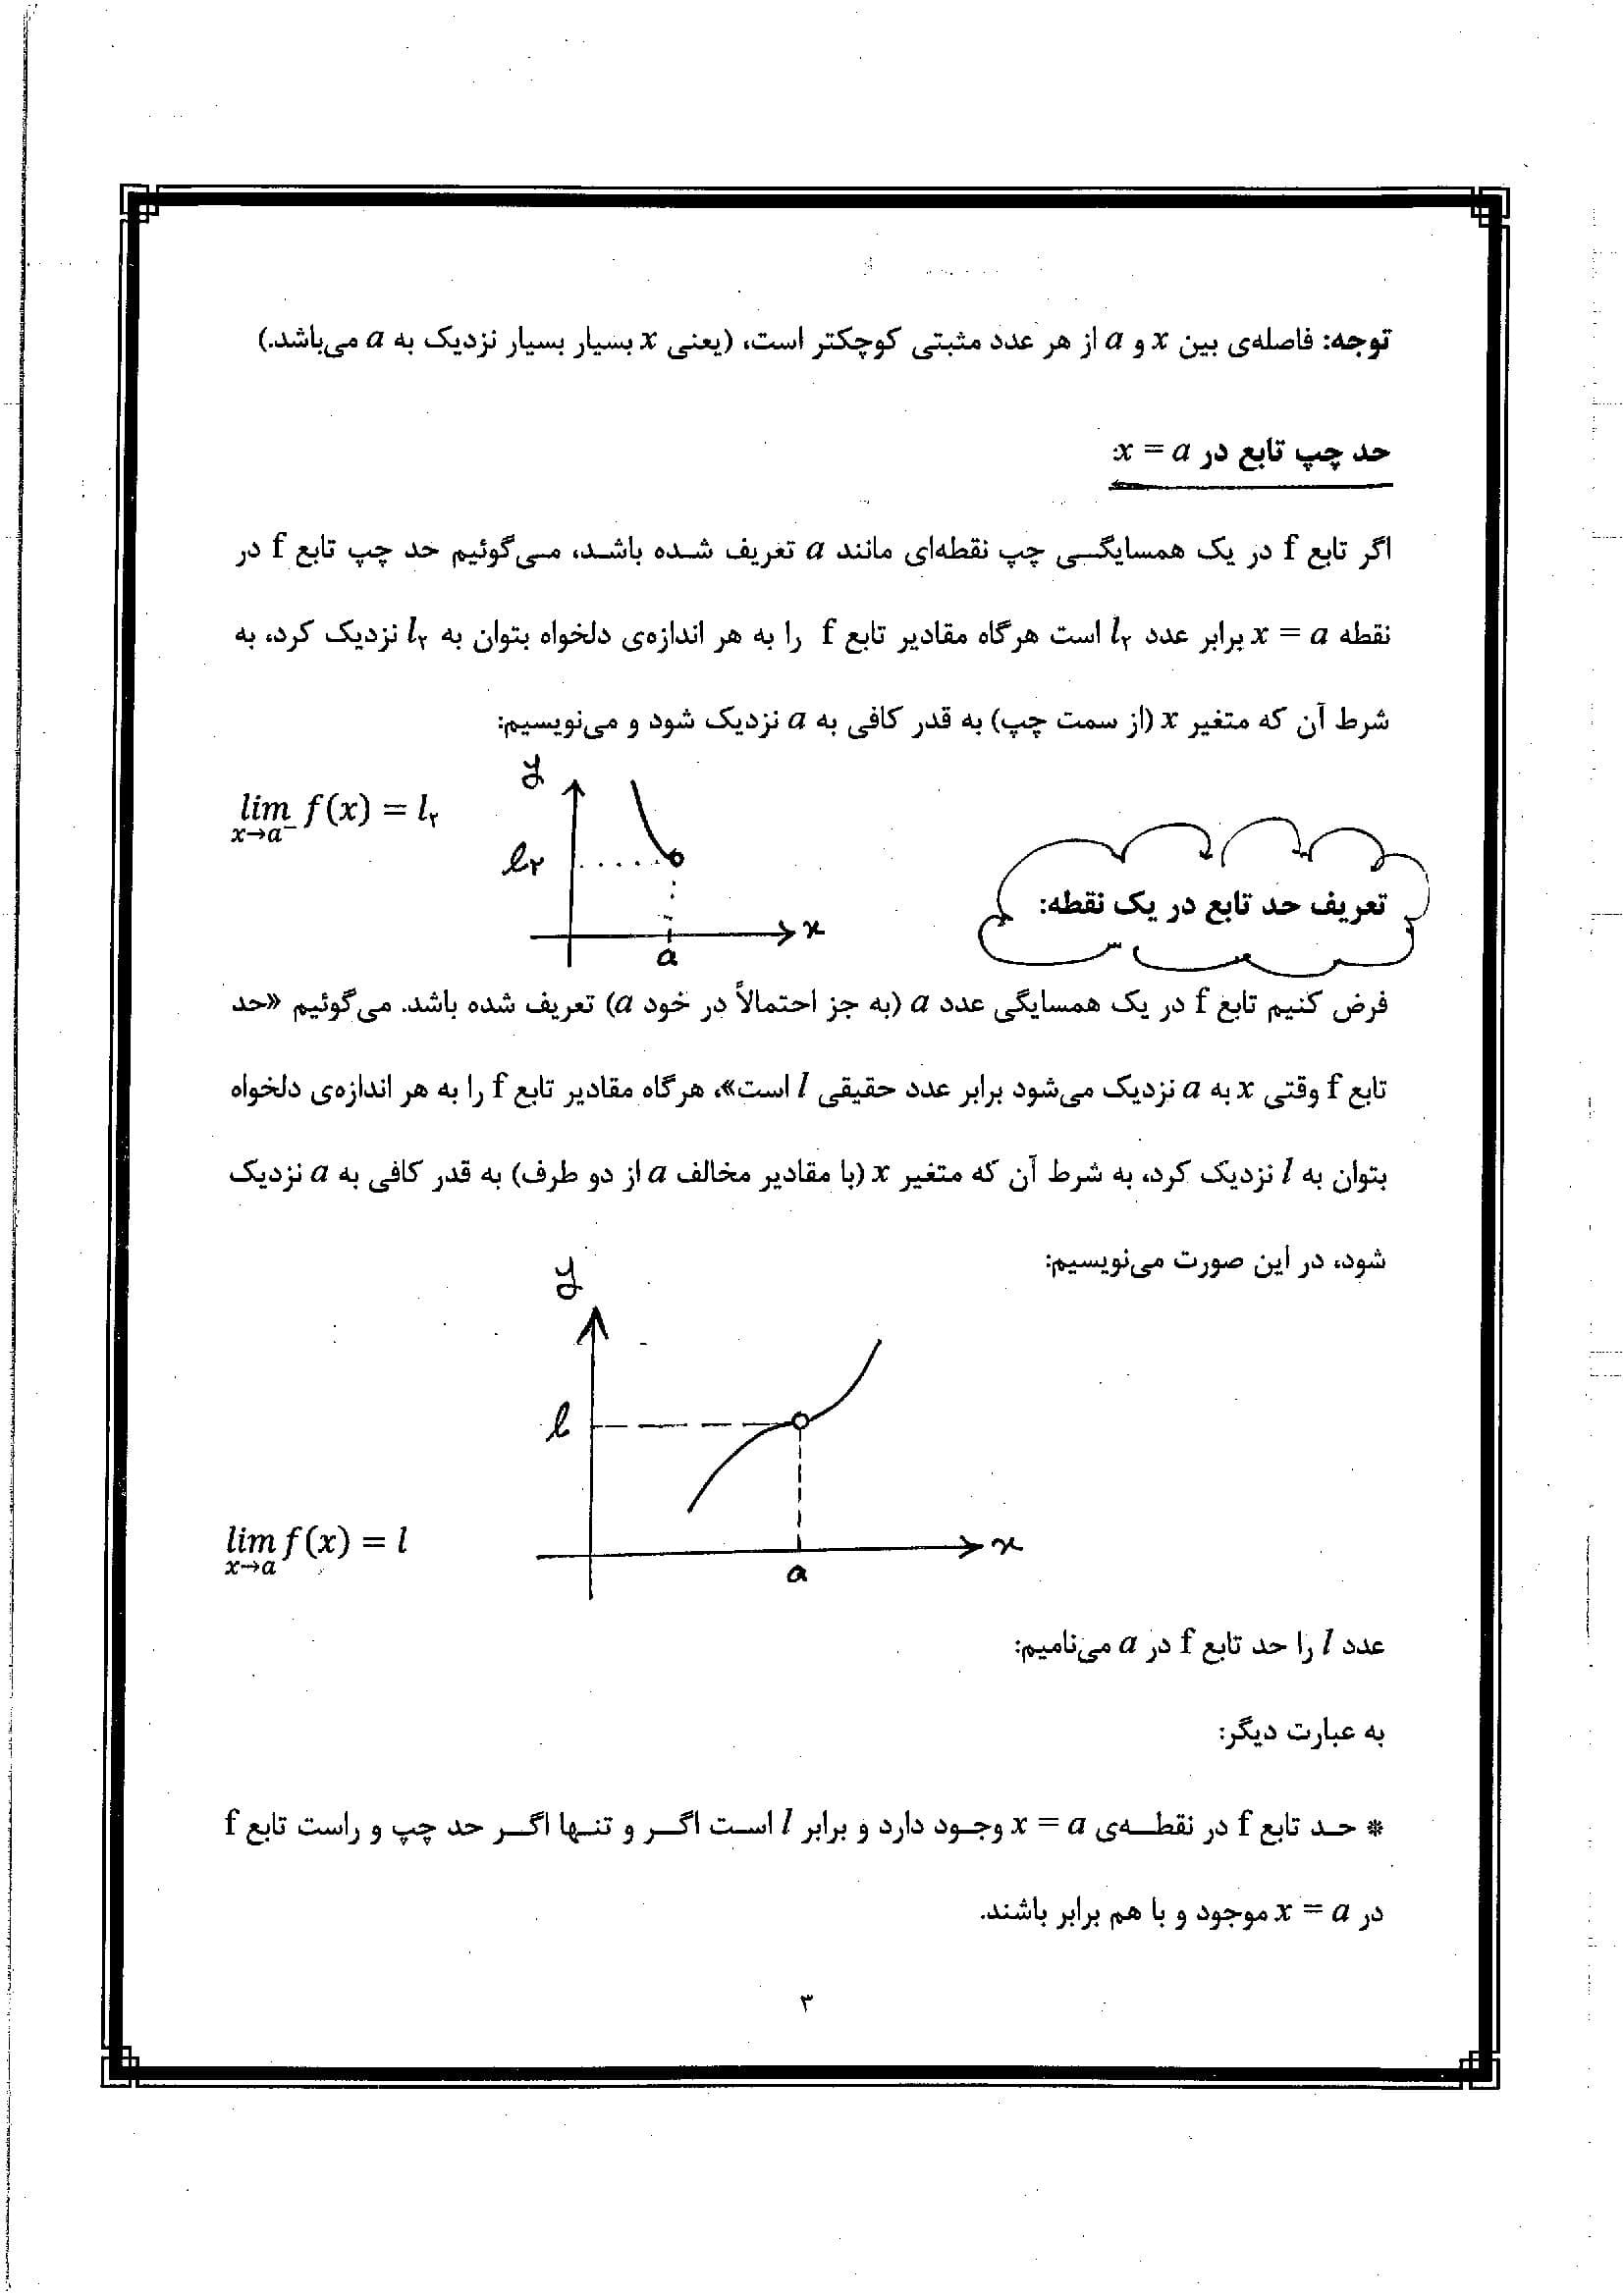 توجه: فاصله‌ی بین x و a از هر عدد مثبتی کوچکتر است، (یعنی x بسیار بسیار نزدیک به a می‌باشد.)
حد چپ تابع در x = a:
اگر تابع f در یک همسایگی چپ نقطه‌ای مانند a تعریف شده باشد، می‌گوئیم حد چپ تابع f در
نقطه x = a برابر عدد l۲ است هرگاه مقادیر تابع f را به هر اندازه‌ی دلخواه بتوان به l۲ نزدیک کرد، به
شرط آن که متغیر x (از سمت چپ) به قدر کافی به a نزدیک شود و می‌نویسیم:
lim x→a⁻ f(x) = l۲
y
l۲
x
a
تعریف حد تابع در یک نقطه:
فرض کنیم تابع f در یک همسایگی عدد a (به جز احتمالاً در خود a) تعریف شده باشد. می‌گوئیم «حد
تابع f وقتی x به a نزدیک می‌شود برابر عدد حقیقی l است»، هرگاه مقادیر تابع f را به هر اندازه‌ی دلخواه
بتوان به l نزدیک کرد، به شرط آن که متغیر x (با مقادیر مخالف a از دو طرف) به قدر کافی به a نزدیک
شود، در این صورت می‌نویسیم:
y
l
lim x→a f(x) = l
x
a
عدد l را حد تابع f در a می‌نامیم:
به عبارت دیگر:
* حد تابع f در نقطه‌ی x = a وجود دارد و برابر l است اگر و تنها اگر حد چپ و راست تابع f
در x = a موجود و با هم برابر باشند.
۳